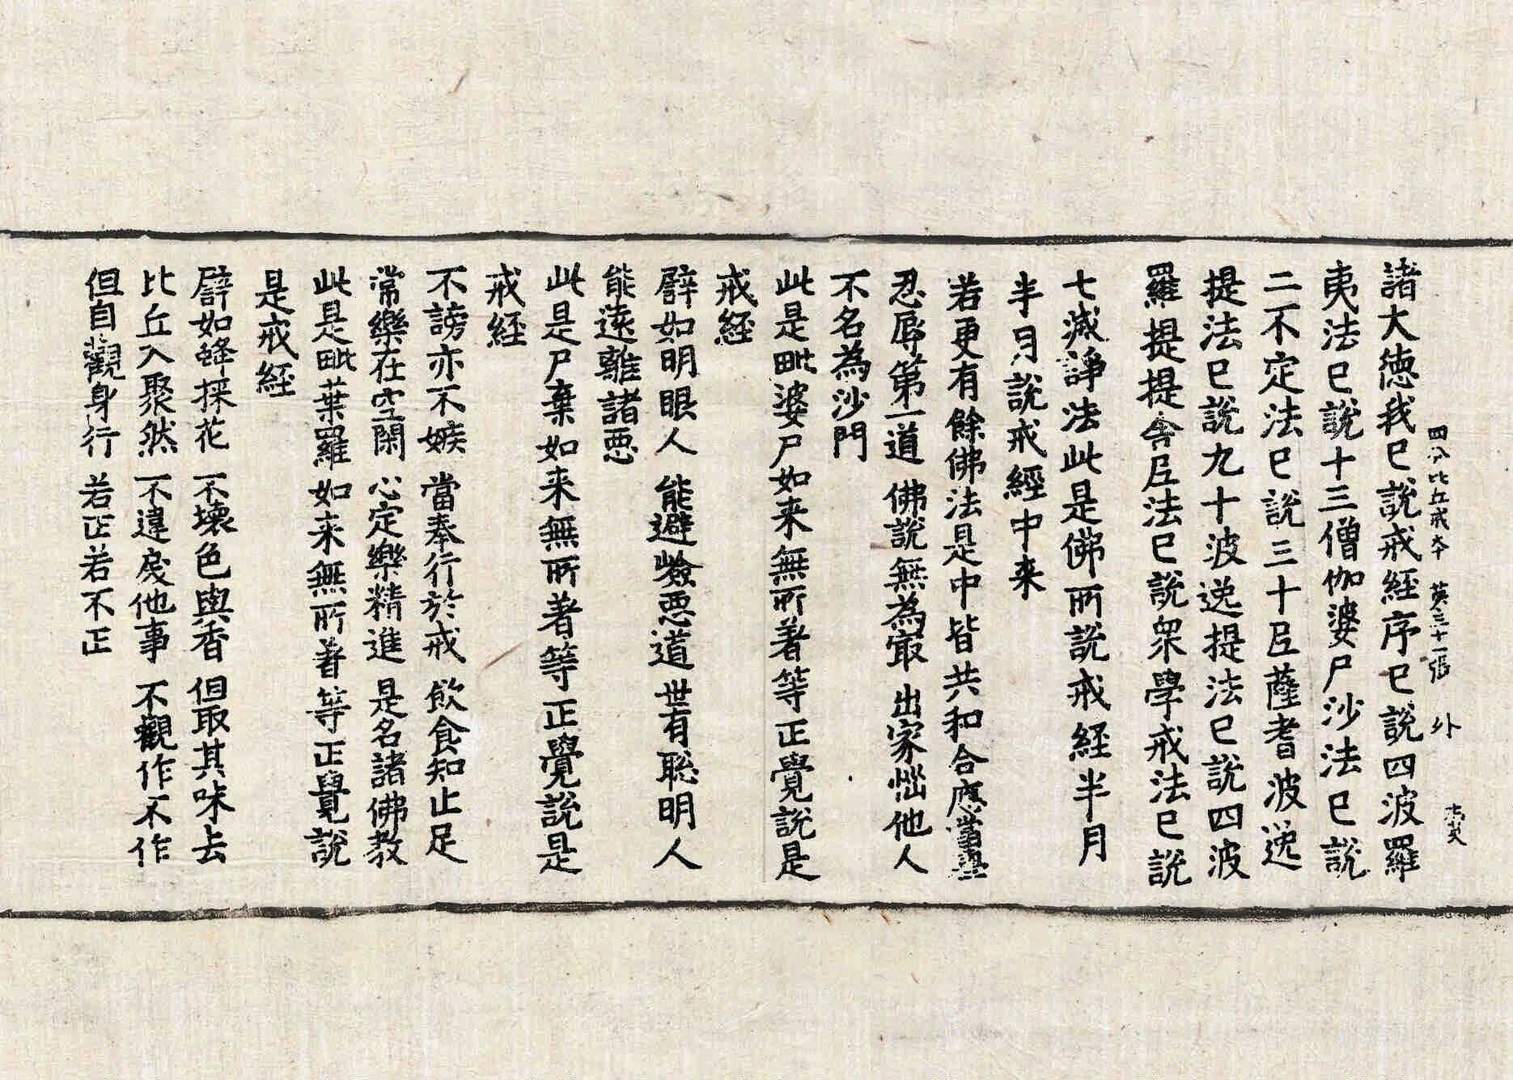 四分比丘戒本 英三十一張 外
諸大德我已說戒經序已說四波羅
夷法已說十三僧伽婆尸沙法已說
二不定法已說三十尼薩耆波逸
提法已說九十波逸提法已說四波
羅提提舍尼法已說眾學戒法已說
七滅諍法此是佛所說戒経半月
半月說戒經中来
若更有餘佛法是中皆共和合應當學
忍辱第一道 佛說無為㝡 出家惱他人
不名為沙門
此是毗婆尸如来無所著等正覺說是
戒経
譬如明眼人 能避嶮惡道 世有聡明人
能遠離諸惡
此是尸棄如来無所著等正覺說是
戒経
不謗亦不嫉 當奉行於戒 飲食知止足
常樂在空閑 心定樂精進 是名諸佛教
此是毗葉羅如来無所著等正覺說
是戒経
譬如蜂採花 不壞色與香 但取其味去
比丘入聚然 不違戾他事 不觀作不作
但自觀身行 若正若不正